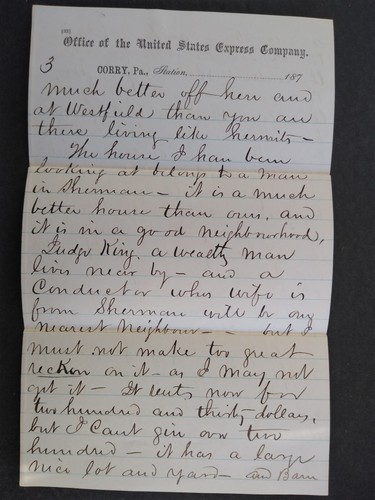 Office of the United States Express Company.
3
CORRY, Pa., Station, 187
much better off here and
at Westfield than you are
there living like hermits –
The house I have been
looking at belongs to a man
in Sherman – it is a much
better house than ours, and
it is in a good neighbourhood,
Judge King, a wealthy man
lives near by – and a
Conductor whos wife is
from Sherman will be our
nearest neighbour – – but I
must not make too great
reckon on it – as I may not
get it – It rents now for
two hundred and thirty dollars,
but I Cant give over two
hundred – it has a large
nice lot and yard – and Barn